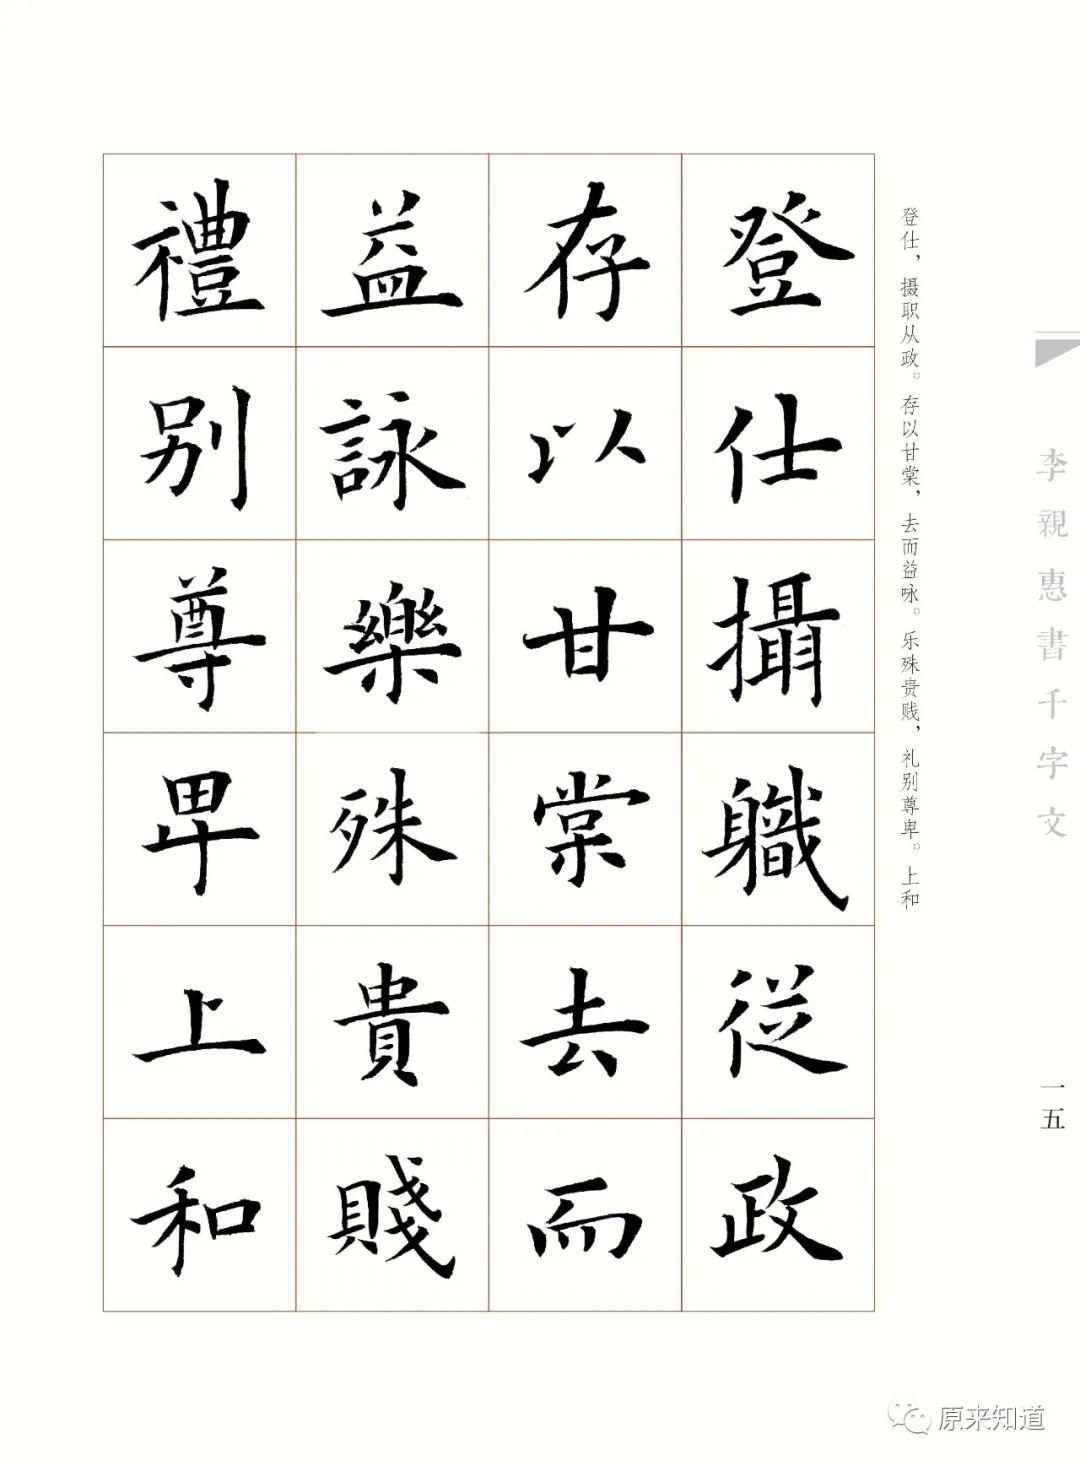 登仕攝職從政
存以甘棠去而
益詠樂殊貴賤
禮别尊卑上和
登仕，摄职从政。存以甘棠，去而益咏。乐殊贵贱，礼别尊卑。上和
李親惠書千字文
一五
原来知道